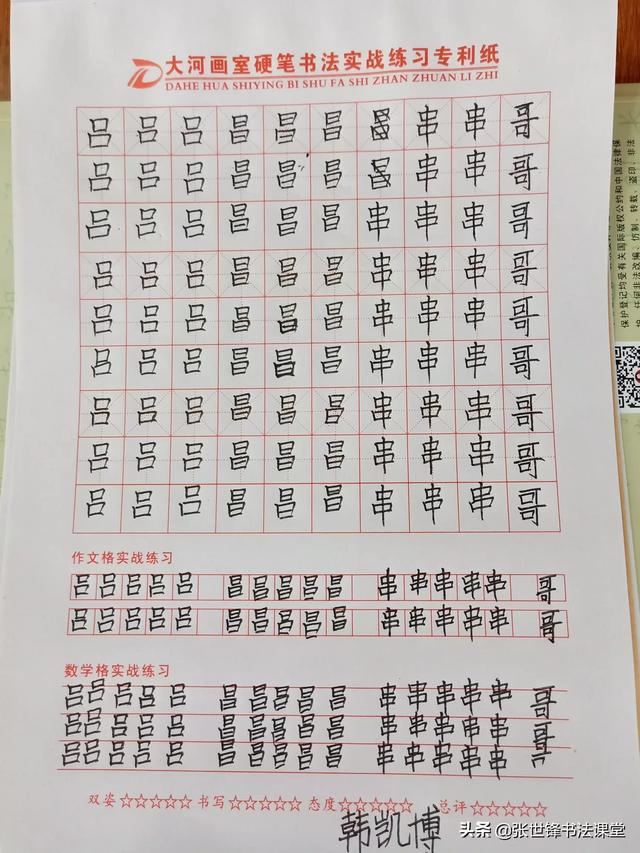 大河画室硬笔书法实战练习专利纸
DAHE HUA SHIYING BI SHU FA SHI ZHAN ZHUAN LI ZHI
吕吕吕昌昌昌串串哥
吕吕吕昌昌昌串串哥
吕吕吕昌昌昌串串串哥
吕吕吕昌昌昌串串串哥
吕吕吕昌昌昌串串串哥
吕吕吕昌昌昌串串串哥
吕吕吕昌昌昌串串串哥
吕吕吕昌昌昌串串串哥
吕吕吕昌昌昌串串串哥
作文格实战练习
吕吕吕吕吕 昌昌昌昌昌 串串串串串 哥
吕吕吕吕吕 昌昌昌昌昌 串串串串串 哥
数学格实战练习
吕吕吕吕吕 昌昌昌昌昌 串串串串串 哥
吕吕吕吕吕 昌昌昌昌昌 串串串串串 哥
吕吕吕吕吕 昌昌昌昌昌 串串串串串
双姿☆☆☆☆☆ 书写☆☆☆☆☆ 态度☆☆☆☆☆ 总评☆☆☆☆☆
韩凯博
保护登记均受有关国际版权公约和中国法律保
改编、仿制、转载、盗印、非法
头条 @张世锋书法课堂